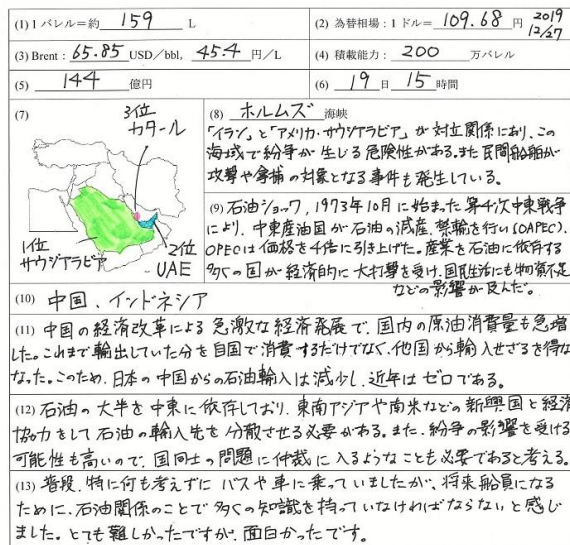 (1) 1 バレル＝約 159 L
(2) 為替相場：1 ドル＝ 109.68 円 2019 12/27
(3) Brent：65.85 USD／bbl, 45.4 円／L
(4) 積載能力： 200 万バレル
(5) 144 億円
(6) 19 日 15 時間
(7)
3位
カタール
1位
サウジアラビア
2位
UAE
(8) ホルムズ 海峡
「イラン」と「アメリカ・サウジアラビア」が対立関係にあり、この
海域で紛争が生じる危険性がある。また民間船舶が
攻撃や拿捕の対象となる事件も発生している。
(9) 石油ショック, 1973年10月に始まった第4次中東戦争
により、中東産油国が石油の減産、禁輸を行い(OAPEC)、
OPECは価格を4倍に引き上げた。産業を石油に依存する
多くの国が経済的に大打撃を受け、国民生活にも物資不足
などの影響が及んだ。
(10) 中国、インドネシア
(11) 中国の経済改革による急激な経済発展で、国内の原油消費量も急増
した。これまで輸出していた分を自国で消費するだけでなく、他国から輸入せざるを得な
なった。このため、日本の中国からの石油輸入は減少し、近年はゼロである。
(12) 石油の大半を中東に依存しており、東南アジアや南米などの新興国と経済
協力をして石油の輸入先を分散させる必要がある。また、紛争の影響を受ける
可能性も高いので、国同士の問題に仲裁に入るようなことも必要であると考える。
(13) 普段、特に何も考えずにバスや車に乗っていましたが、将来船員になる
ために、石油関係のことで多くの知識を持っていなければならないと感じ
ました。とても難しかったですが、面白かったです。